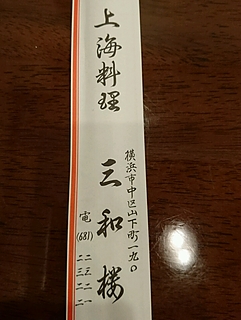 上海料理
三和楼
横浜市中区山下町一九〇
電(681)
二三二一